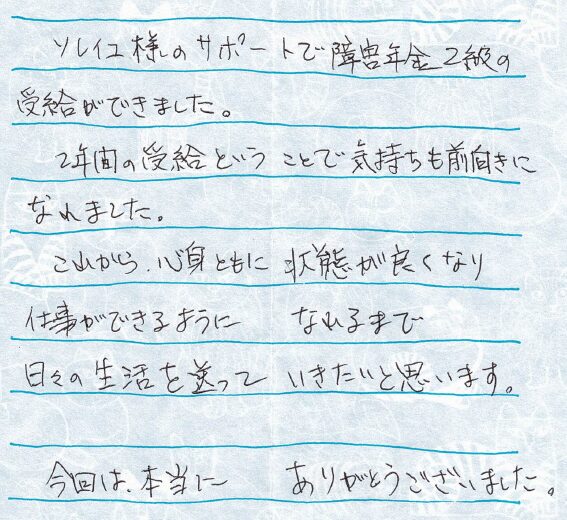 ソレイユ様のサポートで障害年金2級の
受給ができました。
2年間の受給ということで気持ちも前向きに
なれました。
これから、心身ともに状態が良くなり
仕事ができるように なれるまで
日々の生活を送って いきたいと思います。
今回は、本当に ありがとうございました。